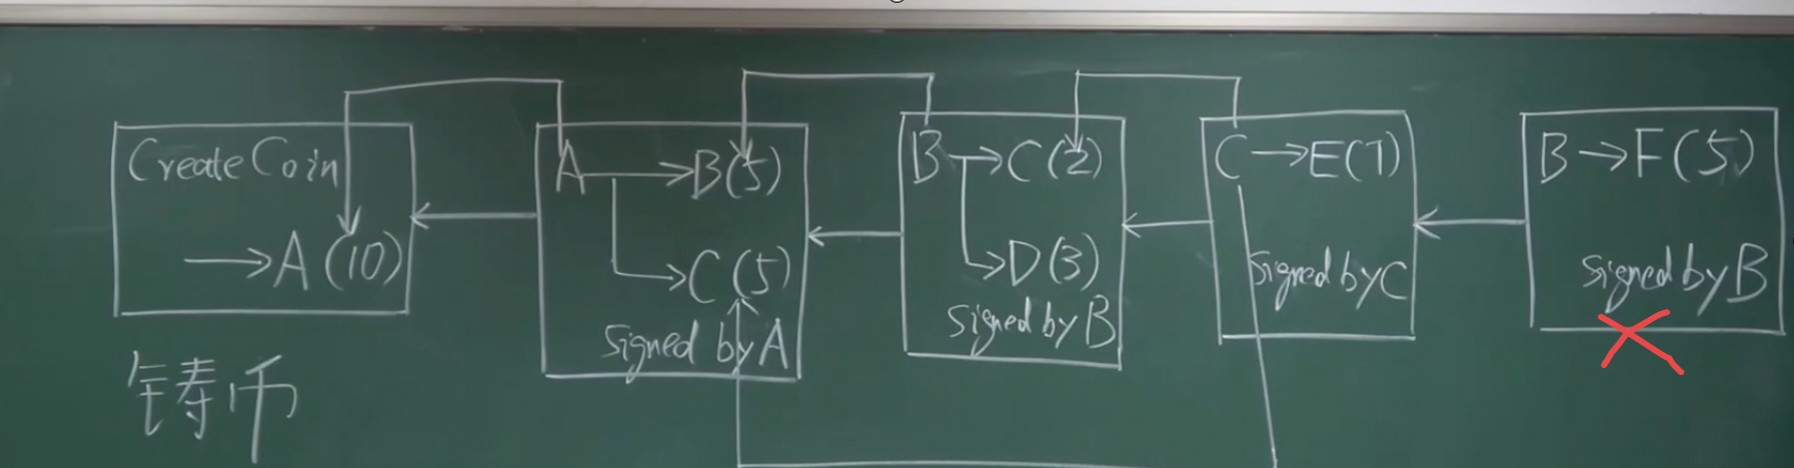 Create Coin
A (10)
A B(5)
C (5)
signed by A
B C(2)
D(3)
signed by B
C E(7)
signed by C
B F(5)
signed by B
铸币